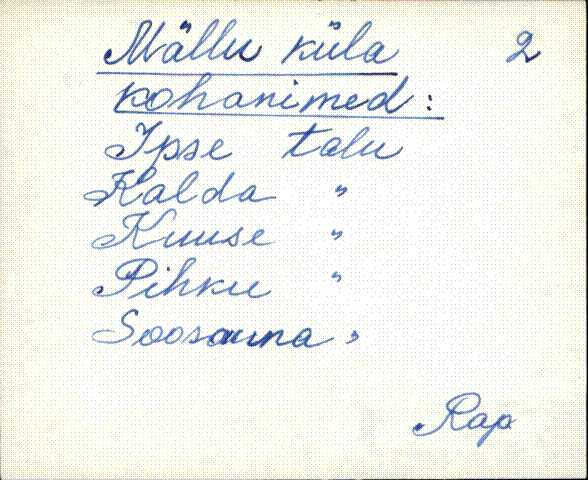 Mällu küla 2
kohanimed:
Ipse talu
Kalda "
Kuuse "
Pihku "
Soosauna "
Rap